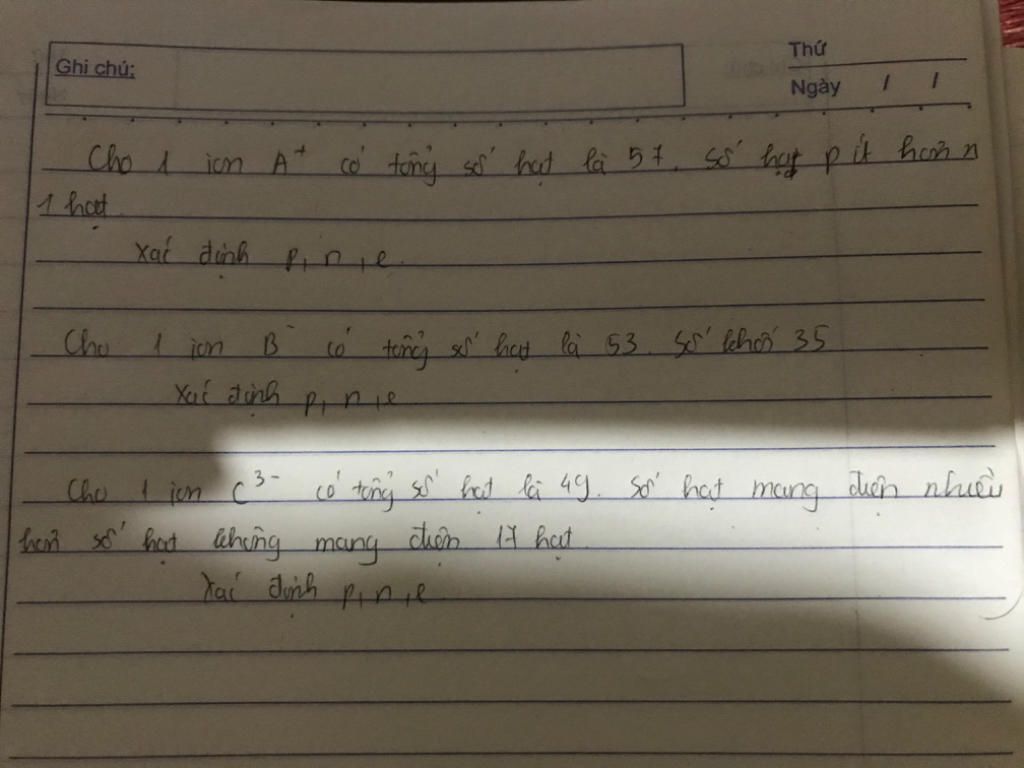 Ghi chú:
Thứ
Ngày / /
Cho 1 ion A⁺ có tổng số hạt là 57. Số hạt p ít hơn n
1 hạt.
Xác định p, n, e.
Cho 1 ion B⁻ có tổng số hạt là 53. Số khối 35
Xác định p, n, e
Cho 1 ion C³⁻ có tổng số hạt là 49. Số hạt mang điện nhiều
hơn số hạt không mang điện 17 hạt.
Xác định p, n, e